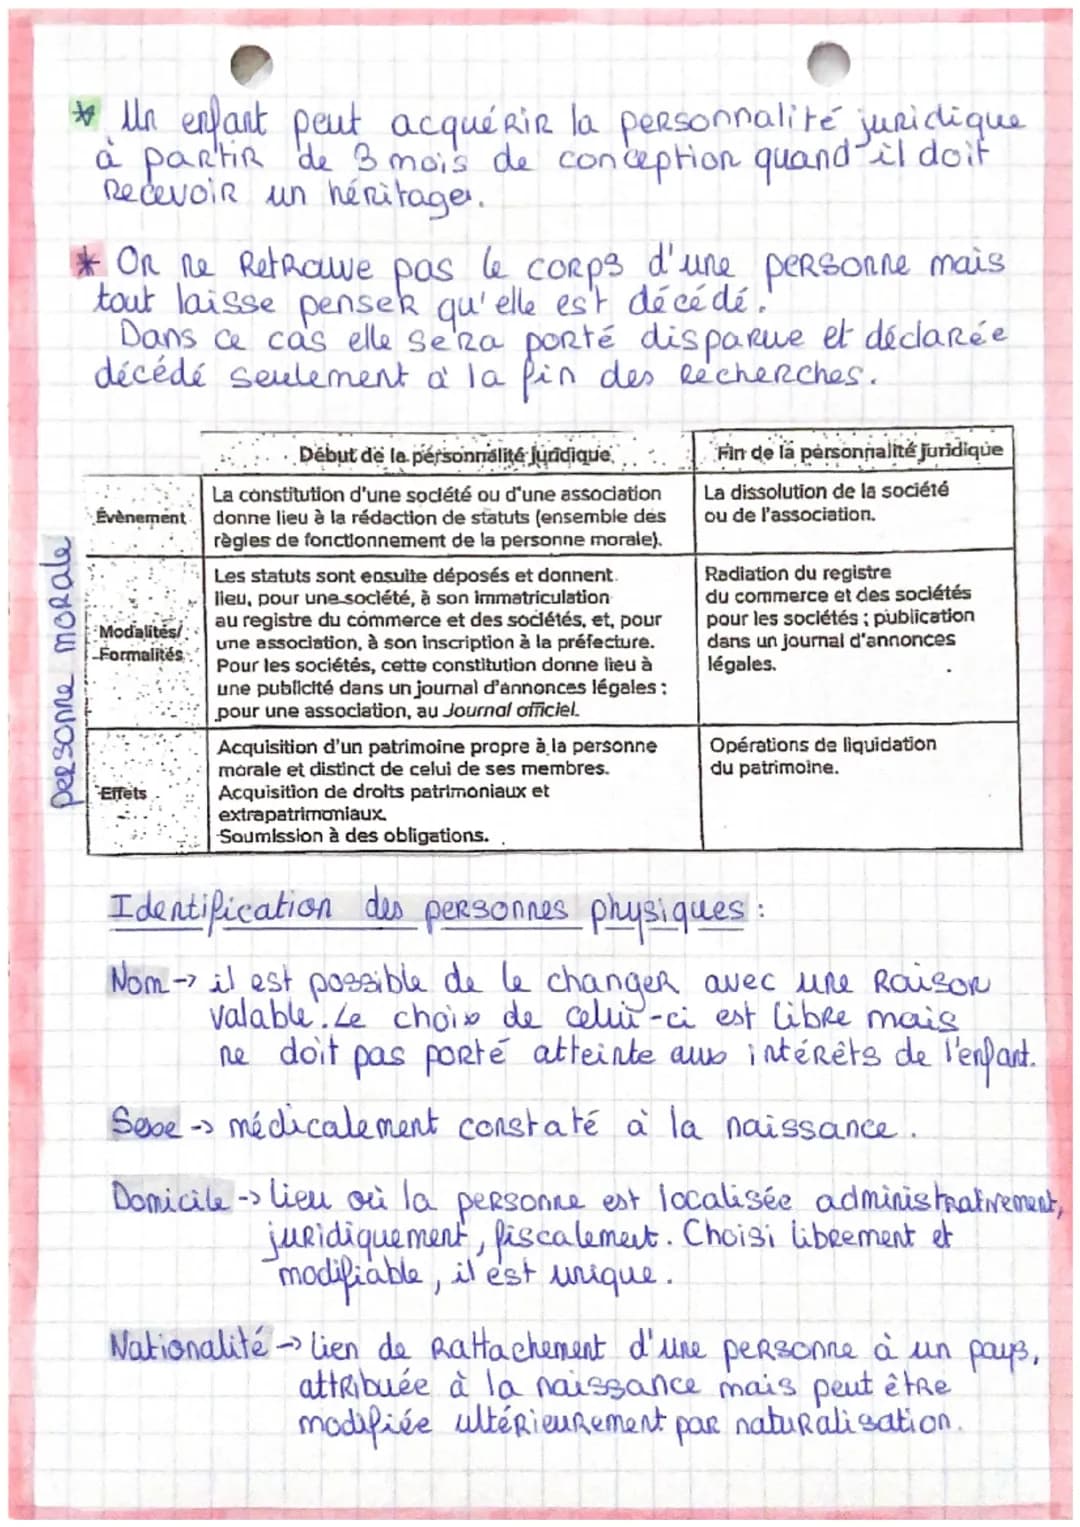 * Un enfant peut acquérir la personnalité juridique
à partir de 3 mois de conception quand il doit
recevoir un héritage.
* On ne retrouve pas le corps d'une personne mais
tout laisse penser qu'elle est décédé.
Dans ce cas elle sera porté disparue et déclarée
décédé seulement à la fin des recherches.
personne morale
Début de la personnalité juridique
Fin de la personnalité juridique
Évènement
La constitution d'une société ou d'une association
donne lieu à la rédaction de statuts (ensemble des
règles de fonctionnement de la personne morale).
La dissolution de la société
ou de l'association.
Modalités/
Formalités
Les statuts sont ensuite déposés et donnent
lieu, pour une société, à son immatriculation
au registre du commerce et des sociétés, et, pour
une association, à son inscription à la préfecture.
Pour les sociétés, cette constitution donne lieu à
une publicité dans un journal d'annonces légales ;
pour une association, au Journal officiel.
Radiation du registre
du commerce et des sociétés
pour les sociétés ; publication
dans un journal d'annonces
légales.
Effets
Acquisition d'un patrimoine propre à la personne
morale et distinct de celui de ses membres.
Acquisition de droits patrimoniaux et
extrapatrimoniaux.
Soumission à des obligations.
Opérations de liquidation
du patrimoine.
Identification des personnes physiques :
Nom -> il est possible de le changer avec une raison
valable. Le choix de celui-ci est libre mais
ne doit pas porté atteinte aux intérêts de l'enfant.
Sexe -> médicalement constaté à la naissance.
Domicile -> lieu où la personne est localisée administrativement,
juridiquement, fiscalement. Choisi librement et
modifiable, il est unique.
Nationalité -> lien de rattachement d'une personne à un pays,
attribuée à la naissance mais peut être
modifiée ultérieurement par naturalisation.